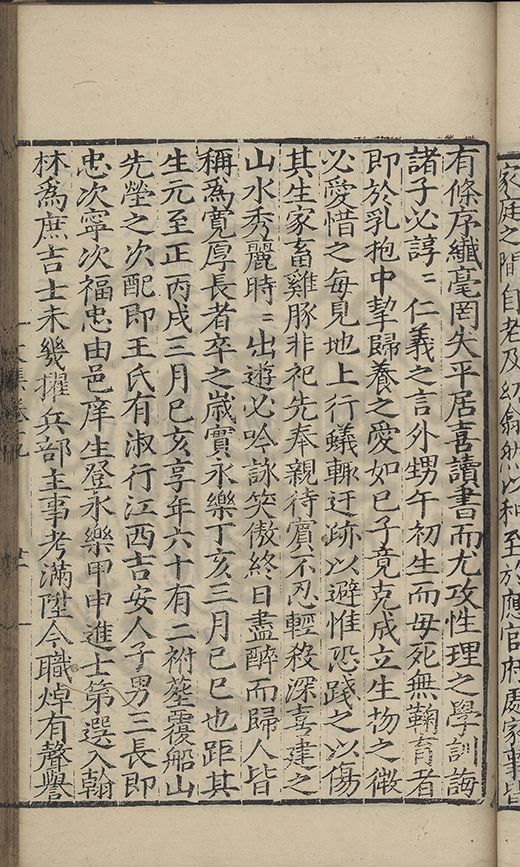 家庭之間自老及幼翕然以和至於應官府處家事皆
有條序纎毫罔失平居喜讀書而尤攻性理之學訓誨
諸子必諄〻仁義之言外甥午初生而母死無鞠育者
即於乳抱中挈歸養之愛如已子竟克成立生物之微
必愛惜之每見地上行蟻輙迂跡以避惟恐踐之以傷
其生家畜雞豚非祀先奉親待賔不忍輕殺深喜建之
山水秀麗時〻出遊必吟詠笑傲終日盡醉而歸人皆
稱為寛厚長者卒之歳實永樂丁亥三月已巳也距其
生元至正丙戌三月已亥享年六十有二祔塟覆船山
先塋之次配即王氏有淑行江西吉安人子男三長即
忠次寧次福忠由邑庠生登永樂甲申進士第選入翰
林為庶吉士未幾擢兵部主事考滿陞今職焯有聲譽